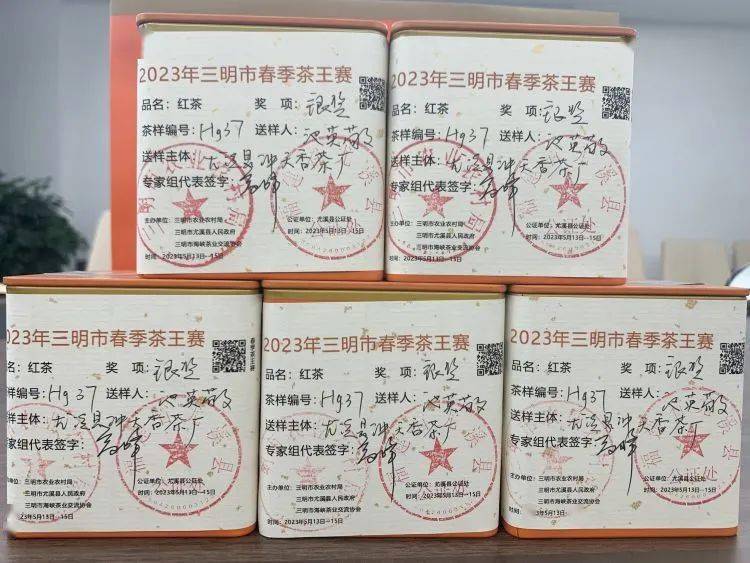 2023年三明市春季茶王赛
品名:红茶 奖 项:银奖
茶样编号:Hg37 送样人:池英敬
送样主体:尤溪县冲天香茶厂
专家组代表签字:
主办单位:三明市农业农村局 公证单位:尤溪县公证处
三明市尤溪县人民政府 时间:2023年5月13日—15日
三明市海峡茶业交流协会
2023年三明市春季茶王赛
品名:红茶 奖 项:银奖
茶样编号:Hg37 送样人:池英敬
送样主体:尤溪县冲天香茶厂
专家组代表签字:
主办单位:三明市农业农村局 公证单位:尤溪县公证处
三明市尤溪县人民政府 时间:2023年5月13日—15日
三明市海峡茶业交流协会
时间:2023年5月13日—15日
2023年三明市春季茶王赛
品名:红茶 奖 项:银奖
茶样编号:Hg37 送样人:池英敬
送样主体:尤溪县冲天香茶厂
专家组代表签字:
主办单位:三明市农业农村局 公证单位:尤溪县公证处
三明市尤溪县人民政府 时间:2023年5月13日—15日
三明市海峡茶业交流协会
23年5月13日—15日
春季茶王赛
2023年三明市春季茶王赛
品名:红茶 奖 项:银奖
茶样编号:Hg37 送样人:池英敬
送样主体:尤溪县冲天香茶厂
专家组代表签字:
主办单位:三明市农业农村局 公证单位:尤溪县公证处
三明市尤溪县人民政府 时间:2023年5月13日—15日
三明市海峡茶业交流协会
2023年三明市春季茶王赛
品名:红茶 奖 项:银奖
茶样编号:Hg37 送样人:池英敬
送样主体:尤溪县冲天香茶厂
专家组代表签字:
主办单位:三明市农业农村局 公证单位:尤溪县公证处
三明市尤溪县人民政府 时间:2023年5月13日—15日
三明市海峡茶业交流协会
3年5月13日—15日